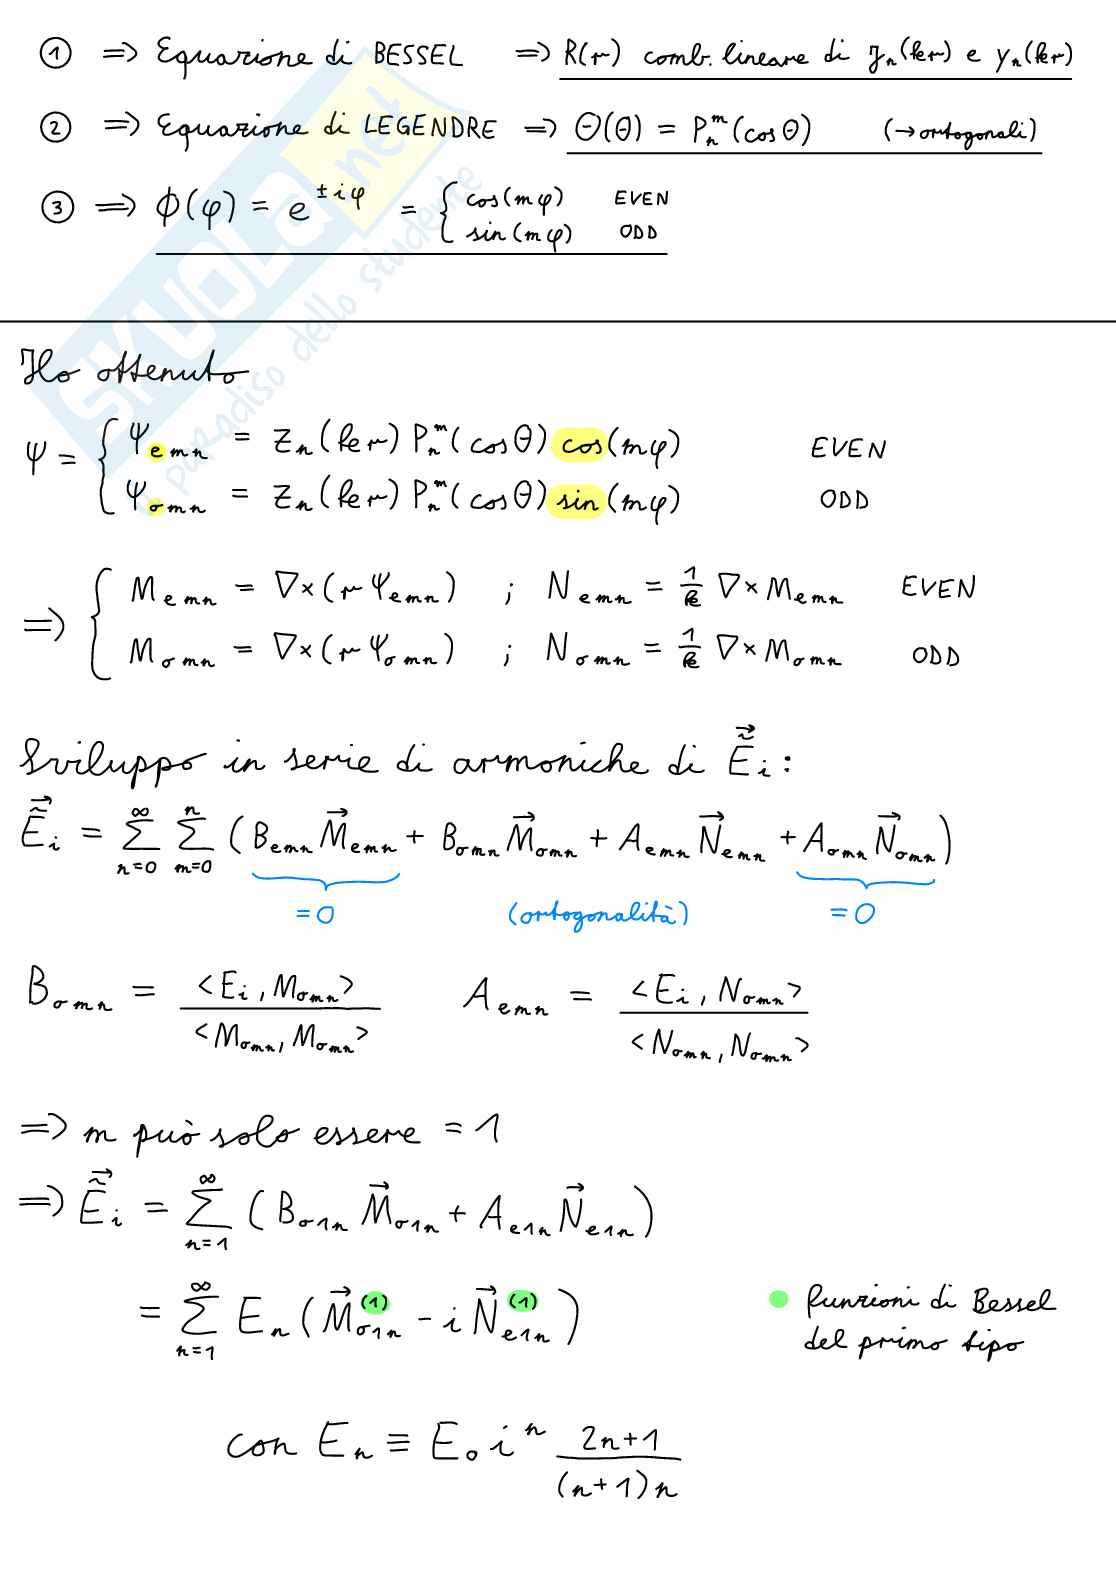 ① ⇒ Equazione di BESSEL ⇒ R(r) comb. lineare di J_n(kr) e y_n(kr)
② ⇒ Equazione di LEGENDRE ⇒ Θ(θ) = P_n^m(cosθ) (→ortogonali)
③ ⇒ ϕ(φ) = e^{±iφ} = { cos(mφ) EVEN
sin(mφ) ODD
SKUOLA.net
il paradiso dello studente
Ho ottenuto
Ψ = { Ψ_{emn} = Z_n(kr) P_n^m(cosθ) cos(mφ) EVEN
Ψ_{omn} = Z_n(kr) P_n^m(cosθ) sin(mφ) ODD
⇒ { M_{emn} = ∇×(r Ψ_{emn}) ; N_{emn} = 1/k ∇×M_{emn} EVEN
M_{omn} = ∇×(r Ψ_{omn}) ; N_{omn} = 1/k ∇×M_{omn} ODD
Sviluppo in serie di armoniche di \vec{\tilde{E}}_i :
\vec{\tilde{E}}_i = ∑_{n=0}^{∞} ∑_{m=0}^{n} (B_{emn} \vec{M}_{emn} + B_{omn} \vec{M}_{omn} + A_{emn} \vec{N}_{emn} + A_{omn} \vec{N}_{omn})
=0 (ortogonalità) =0
B_{omn} = <E_i, M_{omn}> / <M_{omn}, M_{omn}> A_{emn} = <E_i, N_{omn}> / <N_{omn}, N_{omn}>
⇒ m può solo essere = 1
⇒ \vec{\tilde{E}}_i = ∑_{n=1}^{∞} (B_{o1n} \vec{M}_{o1n} + A_{e1n} \vec{N}_{e1n})
= ∑_{n=1}^{∞} E_n (\vec{M}_{o1n}^{(1)} - i \vec{N}_{e1n}^{(1)})
funzioni di Bessel
del primo tipo
con E_n ≡ E_o i^n (2n+1) / ((n+1)n)